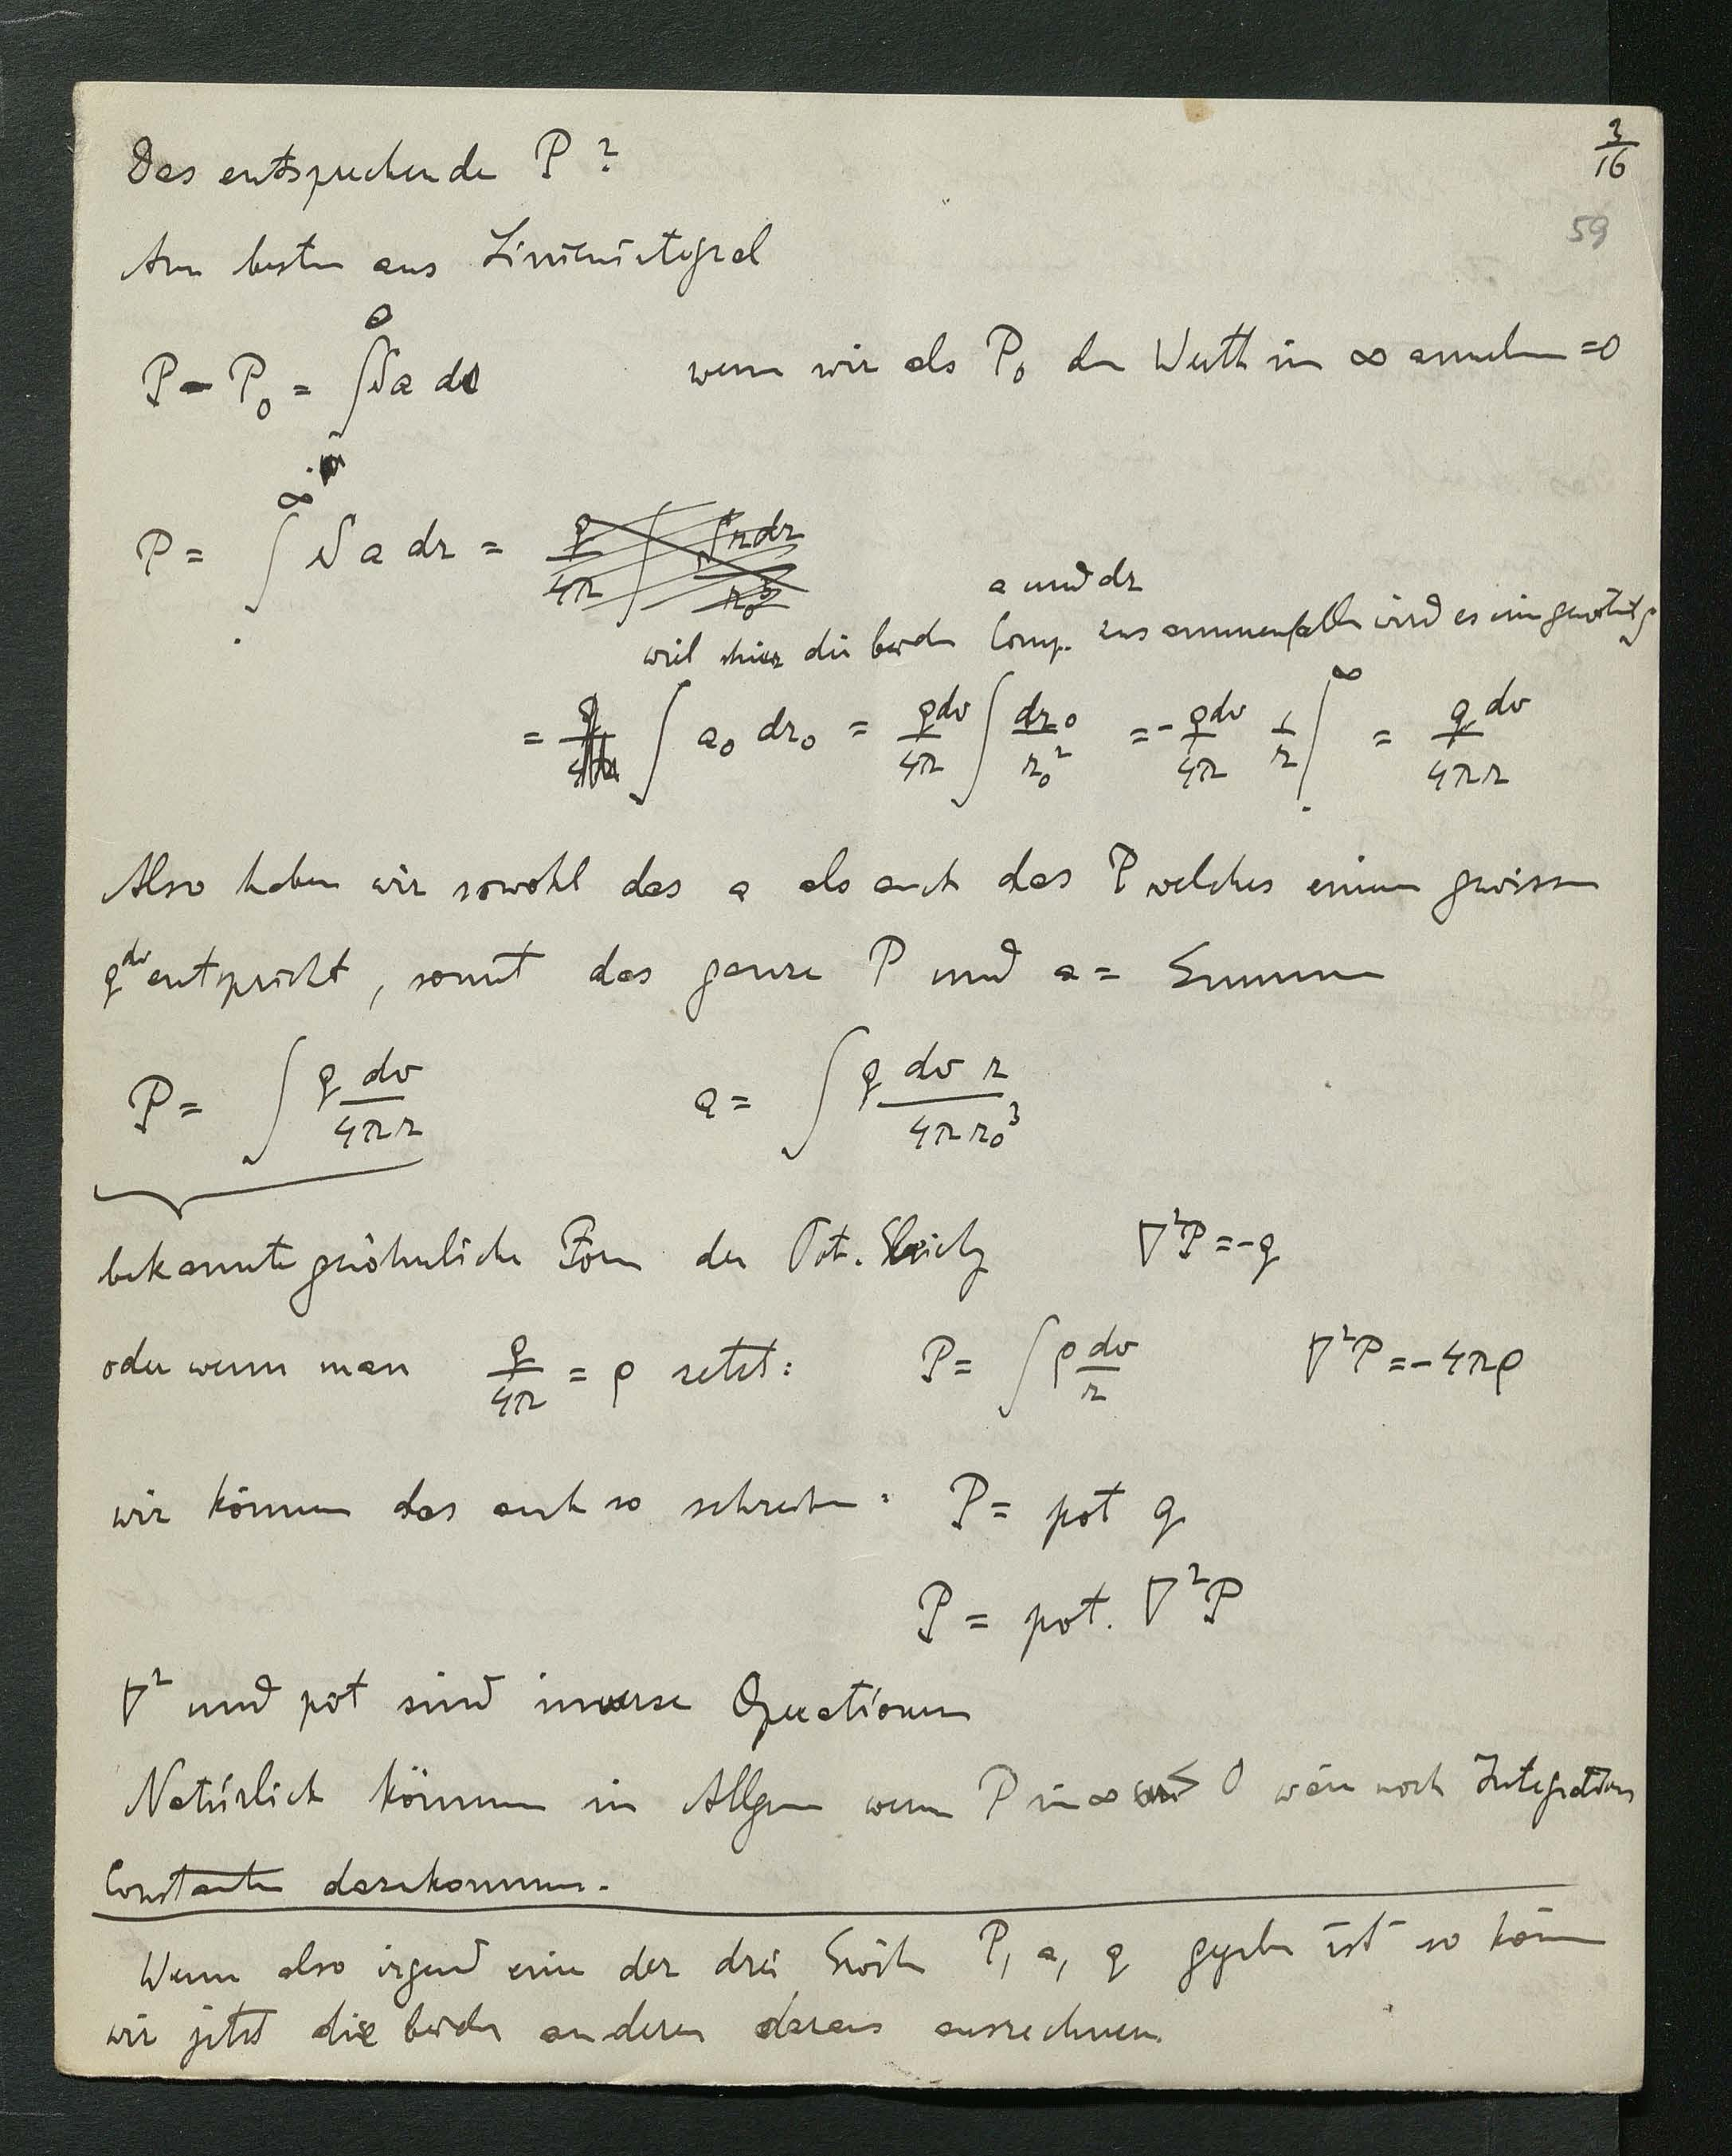 3/16
59
Das entsprechende P ?
Am besten aus Linienintegral
P - P₀ = ∫ S a ds wenn wir als P₀ den Werth in ∞ annehmen = 0
P = ∫^∞ S a dr = q/4π ∫ S r dr / r₀³
a und dr
weil hier die beiden Comp. zusammenfallen wird es ein gewöhnl.
= ∫ a₀ dr₀ = q dv/4π ∫ dr₀/r₀² = - q dv/4π 1/r |^∞ = q dv/4πr
Also haben wir sowohl das a als auch das P welches einem gewissen
q dv entspricht, somit das ganze P und a = Summe
P = ∫ q dv/4πr a = ∫ q dv r/4πr₀³
bekannte gewöhnliche Form der Pot. Gleichg ∇²P = -q
oder wenn man q/4π = ρ setzt: P = ∫ ρ dv/r ∇²P = -4πρ
wir können das auch so schreiben: P = pot q
P = pot. ∇²P
∇² und pot sind inverse Operationen
Natürlich können im Allgem wenn P in ∞ 0 wäre noch Integrations
Constanten dazukommen.
Wenn also irgend eine der drei Größen P, a, q gegeben ist so können
wir jetzt die beiden anderen daraus ausrechnen.